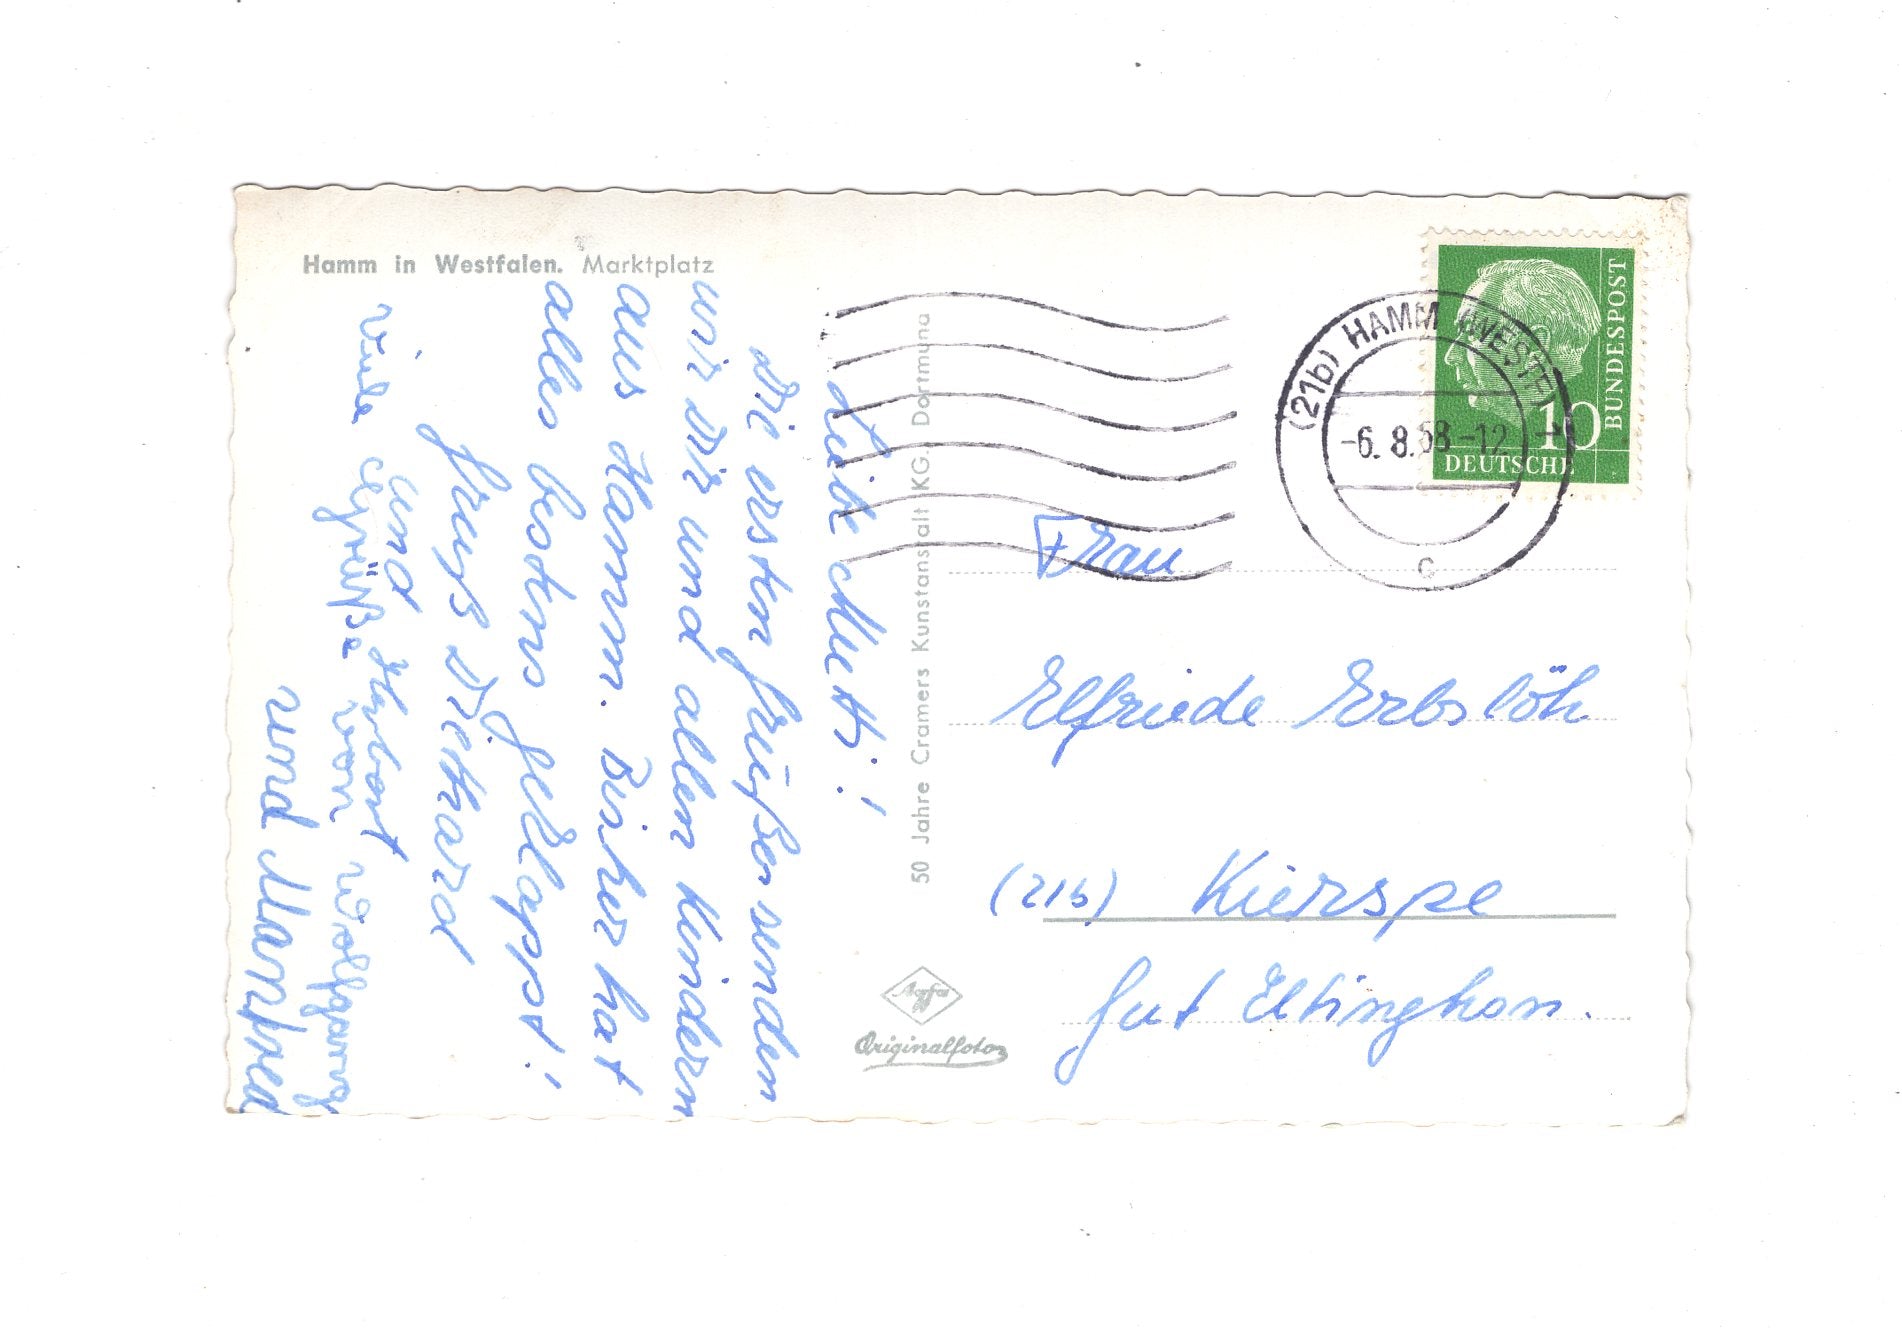 Hamm in Westfalen. Marktplatz
Liebe Mutti!
Die ersten Grüße senden
wir Dir und allen Kindern
aus Hamm. Bisher hat
alles bestens geklappt!
Gruß Diethard
und Herbert
viele Grüße von Wolfgang
und Manfred
50 Jahre Cramers Kunstanstalt KG. Dortmund
Agfa
Originalfoto
(21b) HAMM (WESTF)
-6. 8.58-12
c
10
DEUTSCHE
BUNDESPOST
Frau
Elfriede Erbslöh
(21b) Kierspe
Gut Eltinghsn.